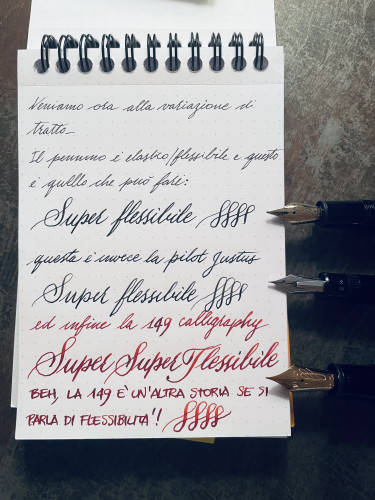 Veniamo ora alla variazione di
tratto_
Il pennino è elastico/flessibile e questo
è quello che può fare:
Super flessibile ſſſſ
questa è invece la pilot Justus
Super flessibile ſſſſ
ed infine la 149 calligraphy
Super Super Flessibile
BEH, LA 149 È UN'ALTRA STORIA SE SI
PARLA DI FLESSIBILITÀ! ſſſſ